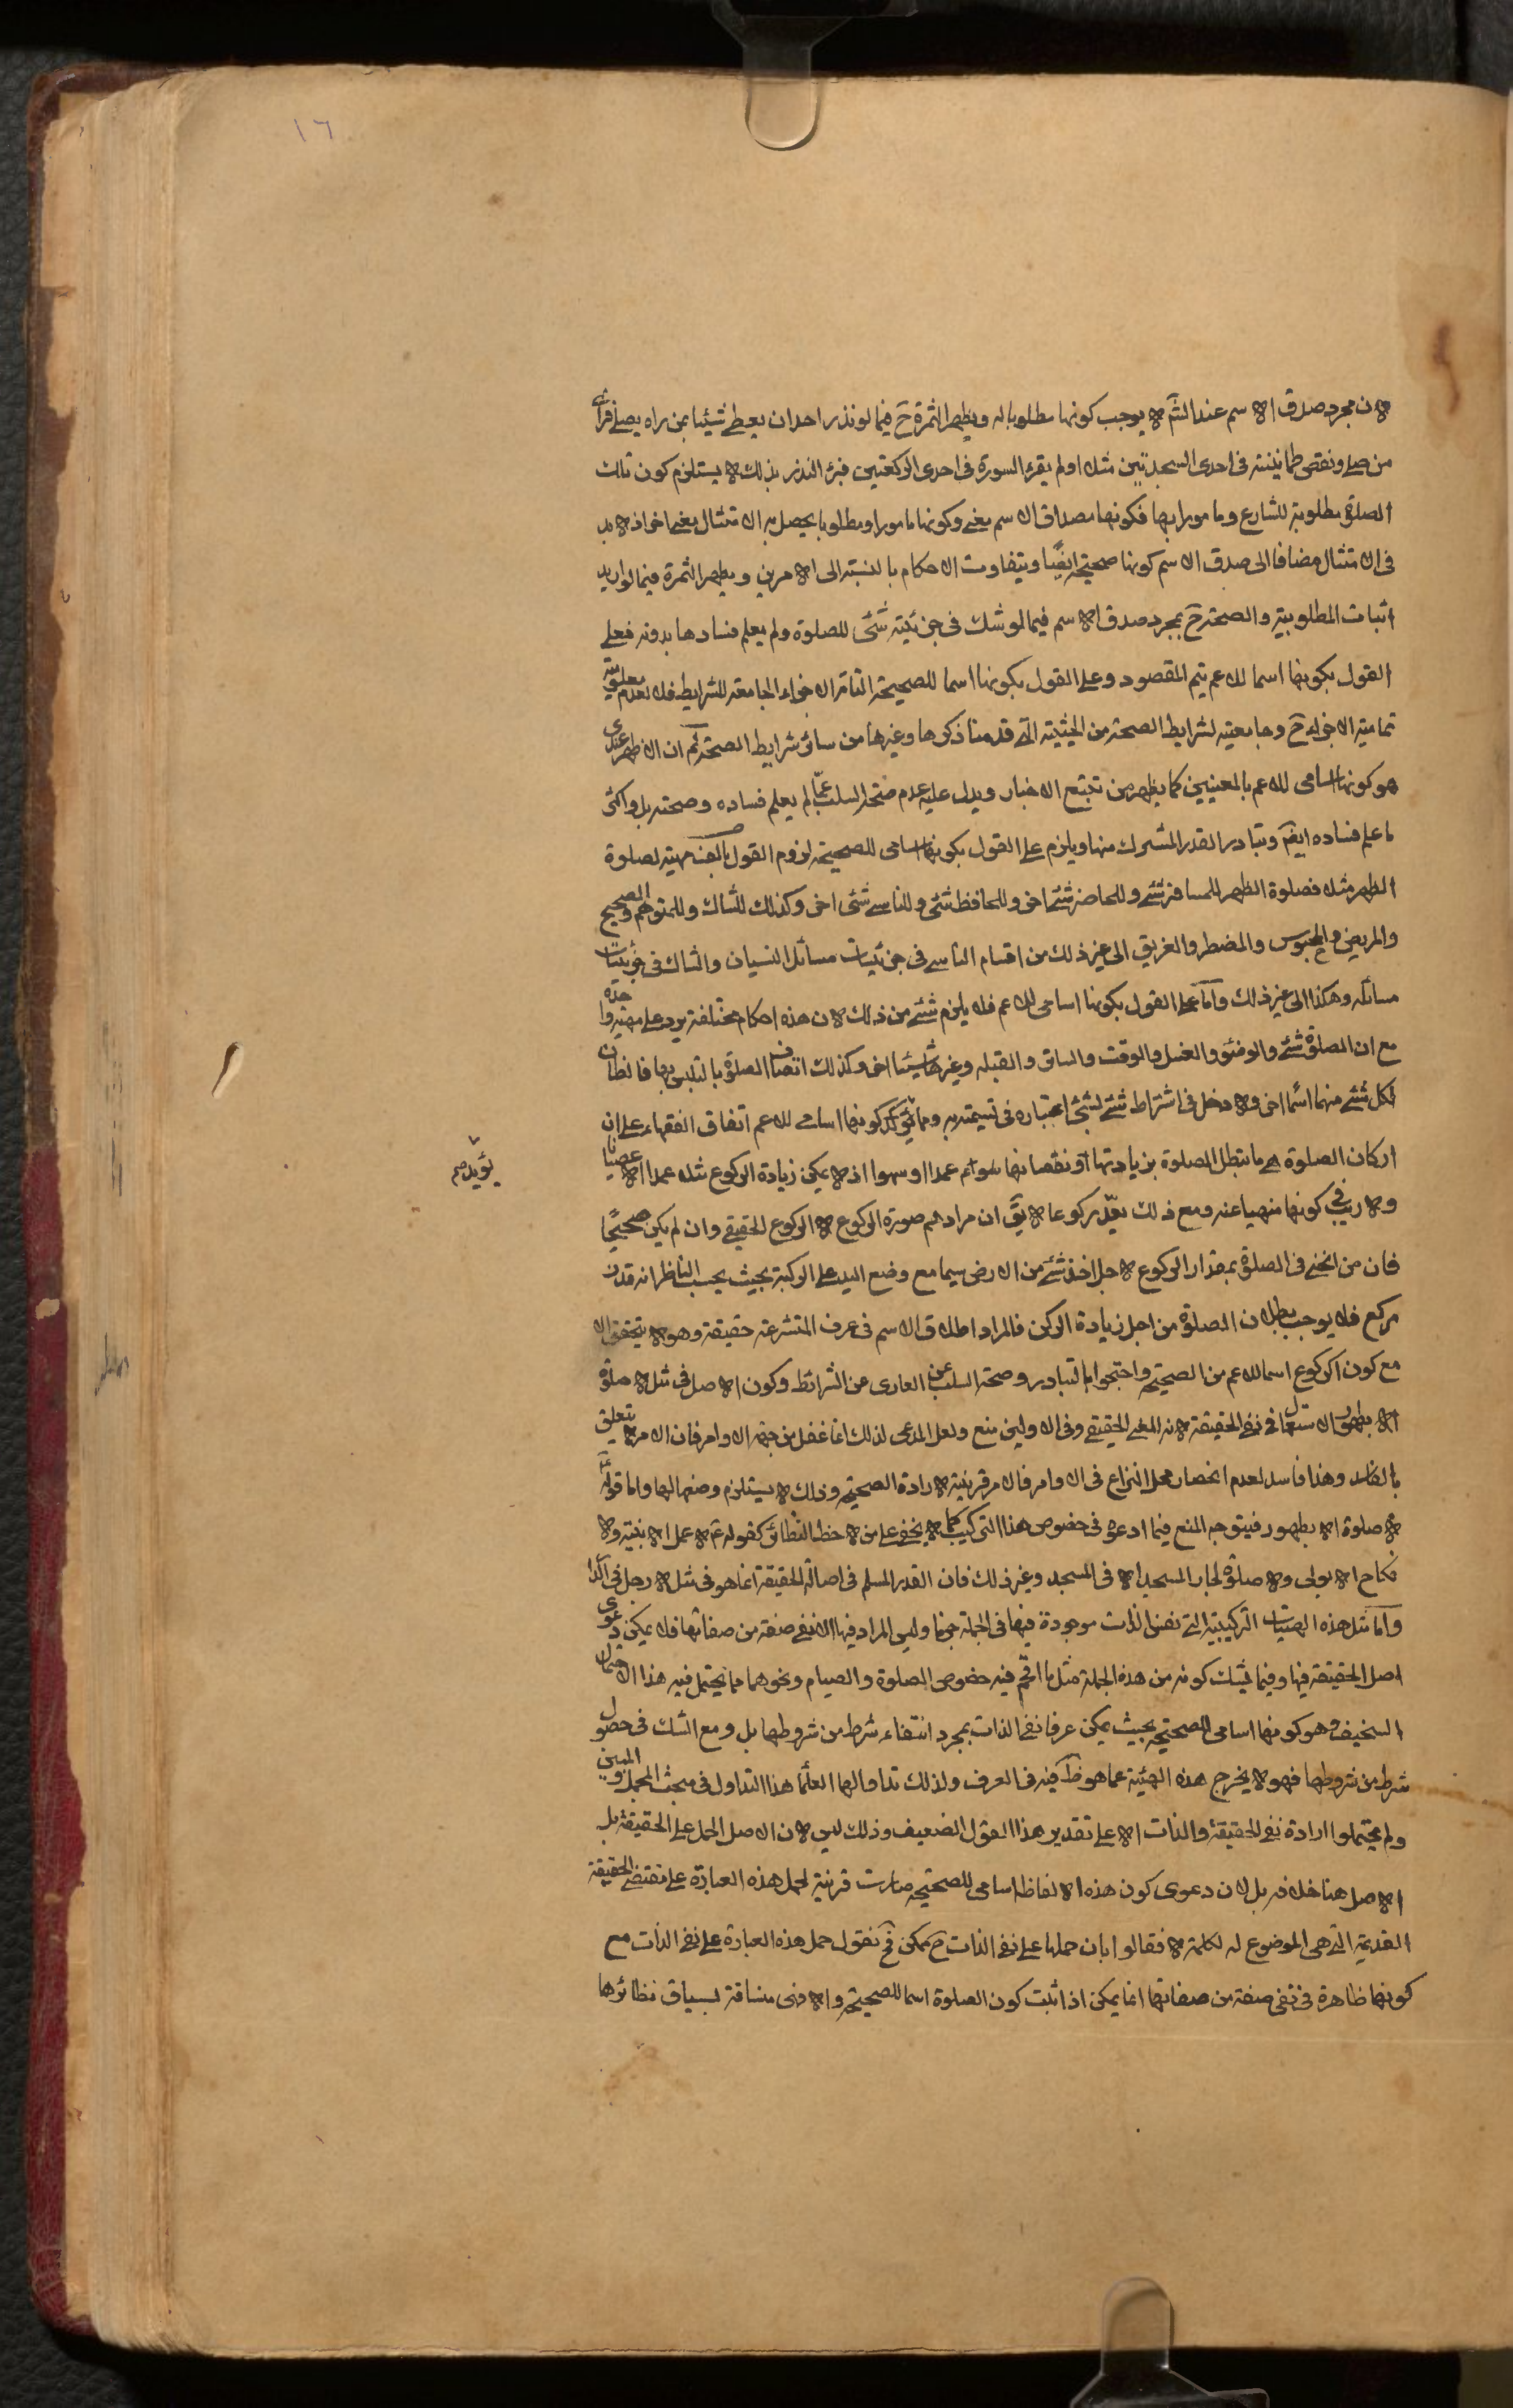 ١٦
لان مجرد صدق الاسم عند الشم لا يوجب كونها مطلوبا له ويظهر الثمرة ح فيما لو نذر احد ان يعطى شيئا بمن راه يصلى فراى
من صلى ونقص طمانينته فى احدى السجدتين مثلا او لم يقرء السورة فى احدى الركعتين فبرء النذر بذلك لا يستلزم كون تلك
الصلوة مطلوبة للشارع وما مورا بها فكونها مصداق الاسم معنى وكونها مامورا ومطلوبا يحصل به الامتثال معنى اخر اذ لا بد
فى الامتثال مضافا الى صدق الاسم كونها صحيحة ايضا ويتفاوت الاحكام بالنسبة الى الامرين ويظهر الثمرة فيما لو اريد
اثبات المطلوبية والصحة ح بمجرد صدق الاسم فيما لو شك فى جزئية شئ للصلوة ولم يعلم فسادها بدونه فعلى
القول بكونها اسما للاعم يتم المقصود وعلى القول بكونها اسما للصحيحة التامة الاجزاء الجامعة للشرايط فلا لعدم معلومية
تمامية الاجزاء ح وجامعيته لشرايط الصحة من الحيثية التى قدمنا ذكرها وغيرها من سائر شرايط الصحة ثم ان الاظهر عندى
هو كونها اسامى للاعم بالمعنيين كما يظهر من تتبع الاخبار ويدل عليه عدم صحة السلب عما لم يعلم فساده وصحته بل واكثر
ما علم فساده ايضا وتبادر القدر المشترك منها ويلزم على القول بكونها اسامى للصحيحة لزوم القول بالف مهية لصلوة
الظهر مثلا فصلوة الظهر للمسافر شئ وللحاضر شئ اخر وللحافظ شئ وللناسى شئ اخر وكذلك للشاك وللمتوهم والصحيح
والمريض والمحبوس والمضطر والغريق الى غير ذلك من اقسام الناسى فى جزئيات مسائل النسيان والشاك فى جزئيات
مسائله وهكذا الى غير ذلك واما على القول بكونها اسامى للاعم فلا يلزم شئ من ذلك لان هذه احكام مختلفة يرد على مهية واحدة
مع ان الصلوة شئ والوضوء والغسل والوقت والساتر والقبلة وغيرها شيئا اخر وكذلك اتصاف الصلوة بالتلبس بها فالظاهر ان
لكل شئ منهما اسما اخر ولا دخل فى اشتراط شئ لشئ اعتباره فى تسميته به ومما يؤكد كونها اسامى للاعم اتفاق الفقهاء على ان
اركان الصلوة هى ما تبطل الصلوة بزيادتها او نقصانها سواء عمدا او سهوا اذ لا يمكن زيادة الركوع مثلا عمدا الا عصيانا
يؤيد صح
ولا ريب فى كونها منهيا عنه ومع ذلك يعد ركوعا لا يق ان مرادهم صورة الركوع لا الركوع الحقيقى وان لم يكن صحيحا
فان من انحنى فى الصلوة بمقدار الركوع لاجل اخذ شئ من الارض سيما مع وضع اليد على الركبة بحيث يحسب الناظر انه قد
ركع فلا يوجب بطلان الصلوة من اجل زيادة الركن فالمراد اطلاق الاسم فى عرف المتشرعة حقيقة وهو لا يتحقق الا
مع كون الركوع اسما للاعم من الصحيحة واحتجوا بالتبادر وصحة السلب عن العارى عن الشرائط وكون الاصل فى مثل لا صلوة
الا بطهور استعمالها فى نفى الحقيقة لانه المعنى الحقيقى وفى الاولين منع ولعل المدعى لذلك انما غفل من جهة الاوامر فان الامر لا يتعلق
بالفاسد وهذا فاسد لعدم انحصار محل النزاع فى الاوامر فالامر قرينة لارادة الصحيحة وذلك لا يستلزم وضعها لها واما قوله
لا صلوة الا بطهور فيتوجه المنع فيما ادعوه فى خصوص هذا التركيب كما لا يخفى على من لاحظ النظائر كقوله ع لا عمل الا بنية ولا
نكاح الا بولى ولا صلوة لجار المسجد الا فى المسجد وغير ذلك فان القدر المسلم فى اصالة الحقيقة انما هو فى مثل لا رجل فى الدار
واما مثل هذه الهيئات التركيبية التى نفس الذات موجودة فيها فى الجملة جزما وليس المراد فيها الا نفى صفة من صفاتها فلا يمكن دعوى
اصل الحقيقة فيها وفيما يشك كونه من هذه الجملة مثل ما اقحم فيه خصوص الصلوة والصيام ونحوهما مما يحتمل فيه هذا الاحتمال
السخيف وهو كونها اسامى للصحيحة بحيث يمكن عرفا نفى الذات بمجرد انتفاء شرط من شروطها بل ومع الشك فى حصول
شرط من شروطها فهو لا يخرج هذه الهيئة عما هو ظ فيه فى العرف ولذلك تداولها العلما هذا التداول فى مبحث المجمل والمبين
ولم يحتملوا ارادة نفى الحقيقة والذات الا على تقدير هذا القول الضعيف وذلك ليس لان الاصل الحمل على الحقيقة بل
الاصل هنا خلافه بل لان دعوى كون هذه الالفاظ اسامى للصحيحة صارت قرينة لحمل هذه العبارة على مقتضى الحقيقة
القديمة التى هى الموضوع له لكلمة لا فقالوا بان حملها على نفى الذات ح ممكن فح نقول حمل هذه العبارة على نفى الذات مع
كونها ظاهرة فى نفى صفة من صفاتها انما يمكن اذا ثبت كون الصلوة اسما للصحيحة والا فهى منساقة لسياق نظائرها